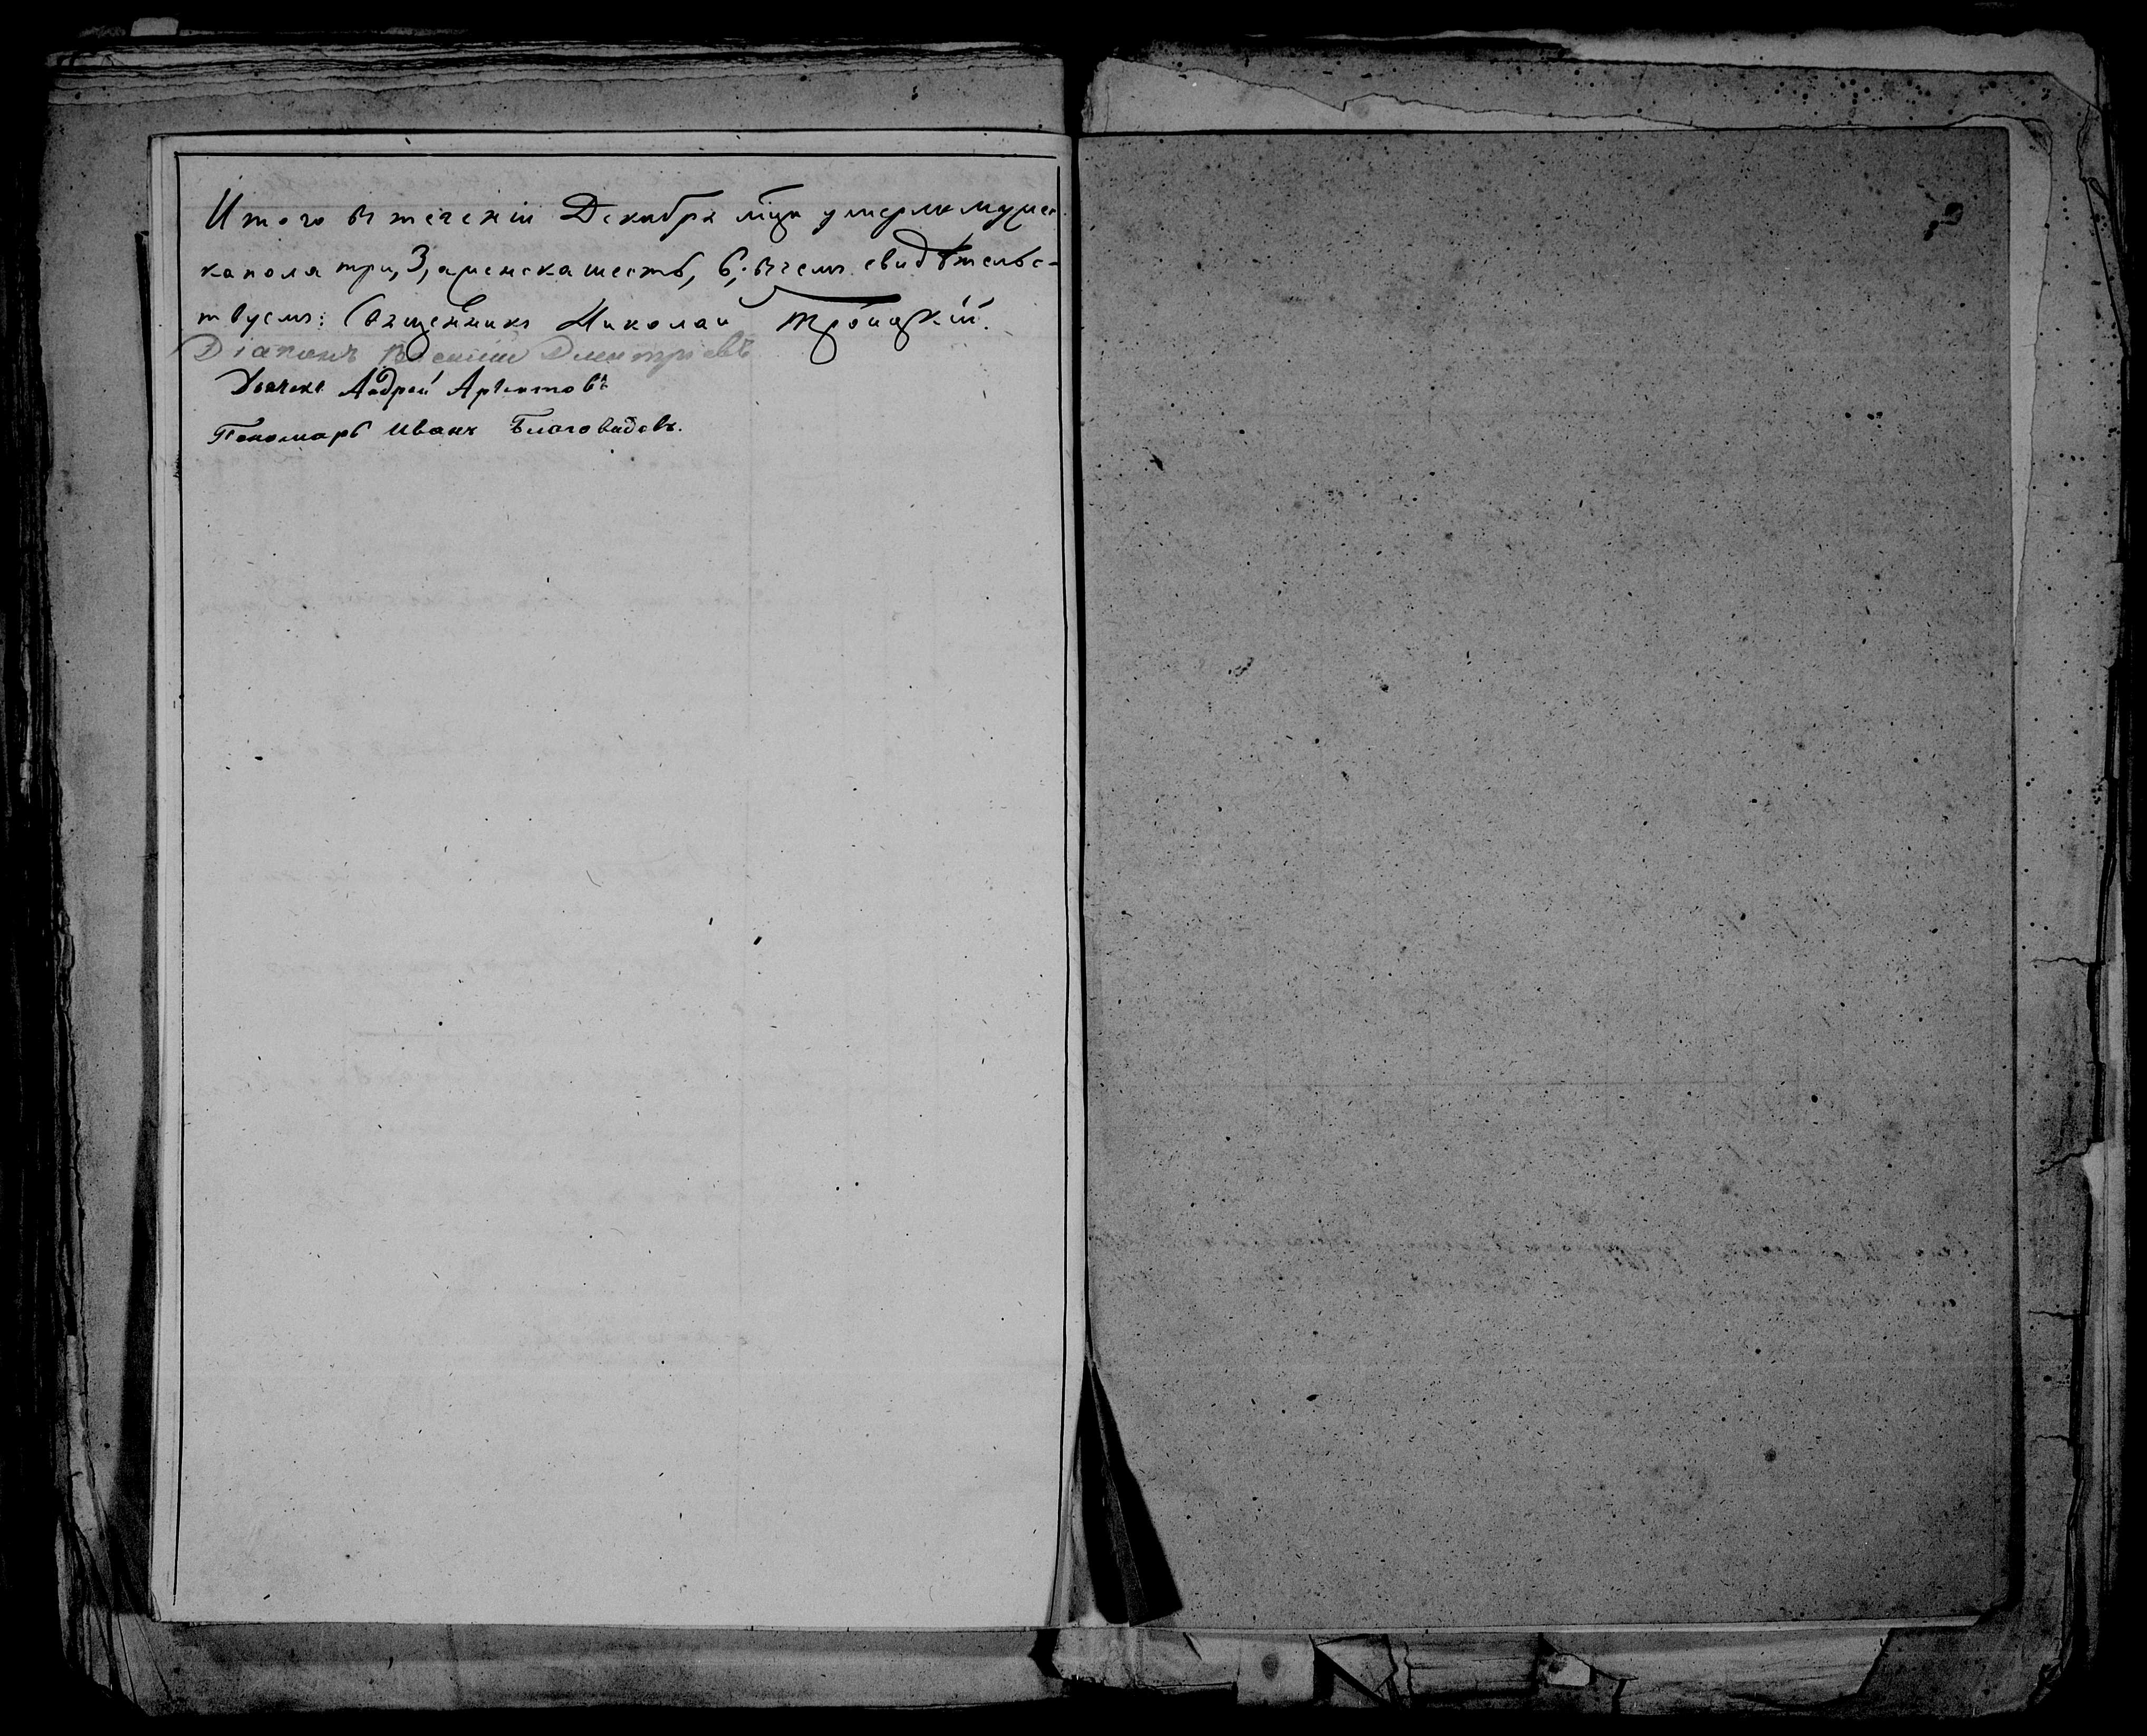 Итого въ теченіи Декабря мца умерло мужес-
ка пола три, 3, а женска шесть, 6; въ чемъ свидѣтельс-
твуемъ: Священникъ Николай Троицкій.
Діаконъ Василій Димитріевъ
Дьячекъ Андрей
Пономарь Иванъ Благовидовъ.